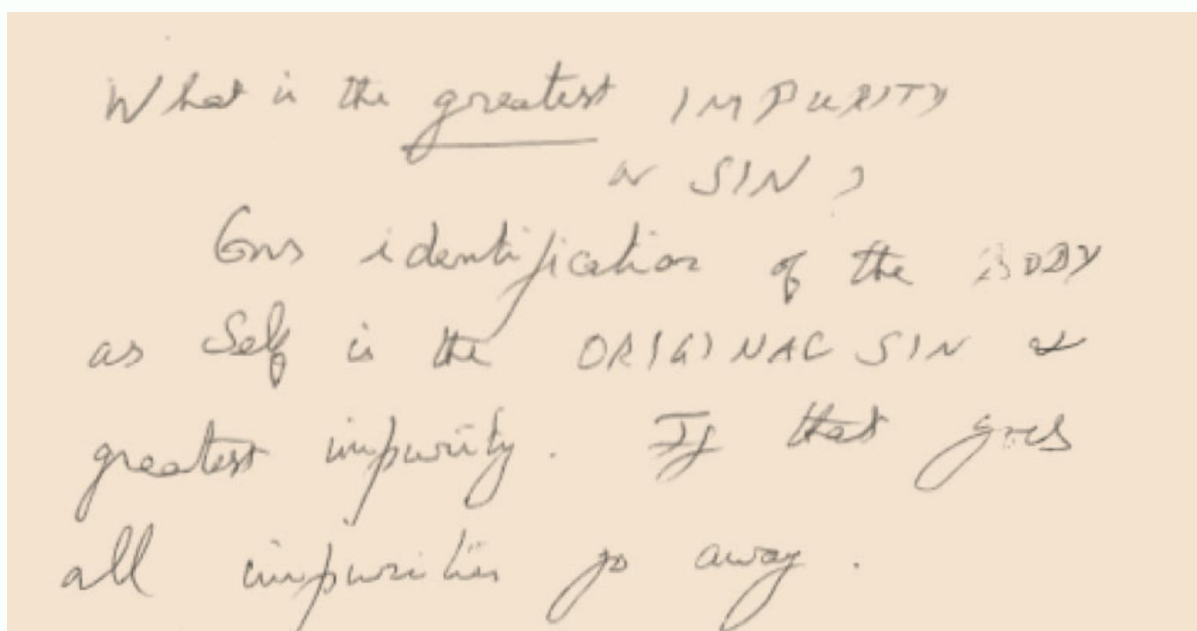 What is the greatest IMPURITY
or SIN ?
identification of the BODY
as Self is the ORIGINAL SIN &
greatest impurity. If that goes
all impurities go away.